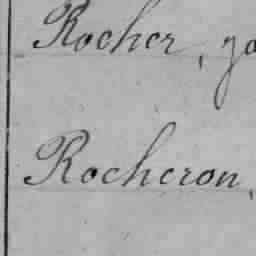 Rocher, ja
Rocheron,